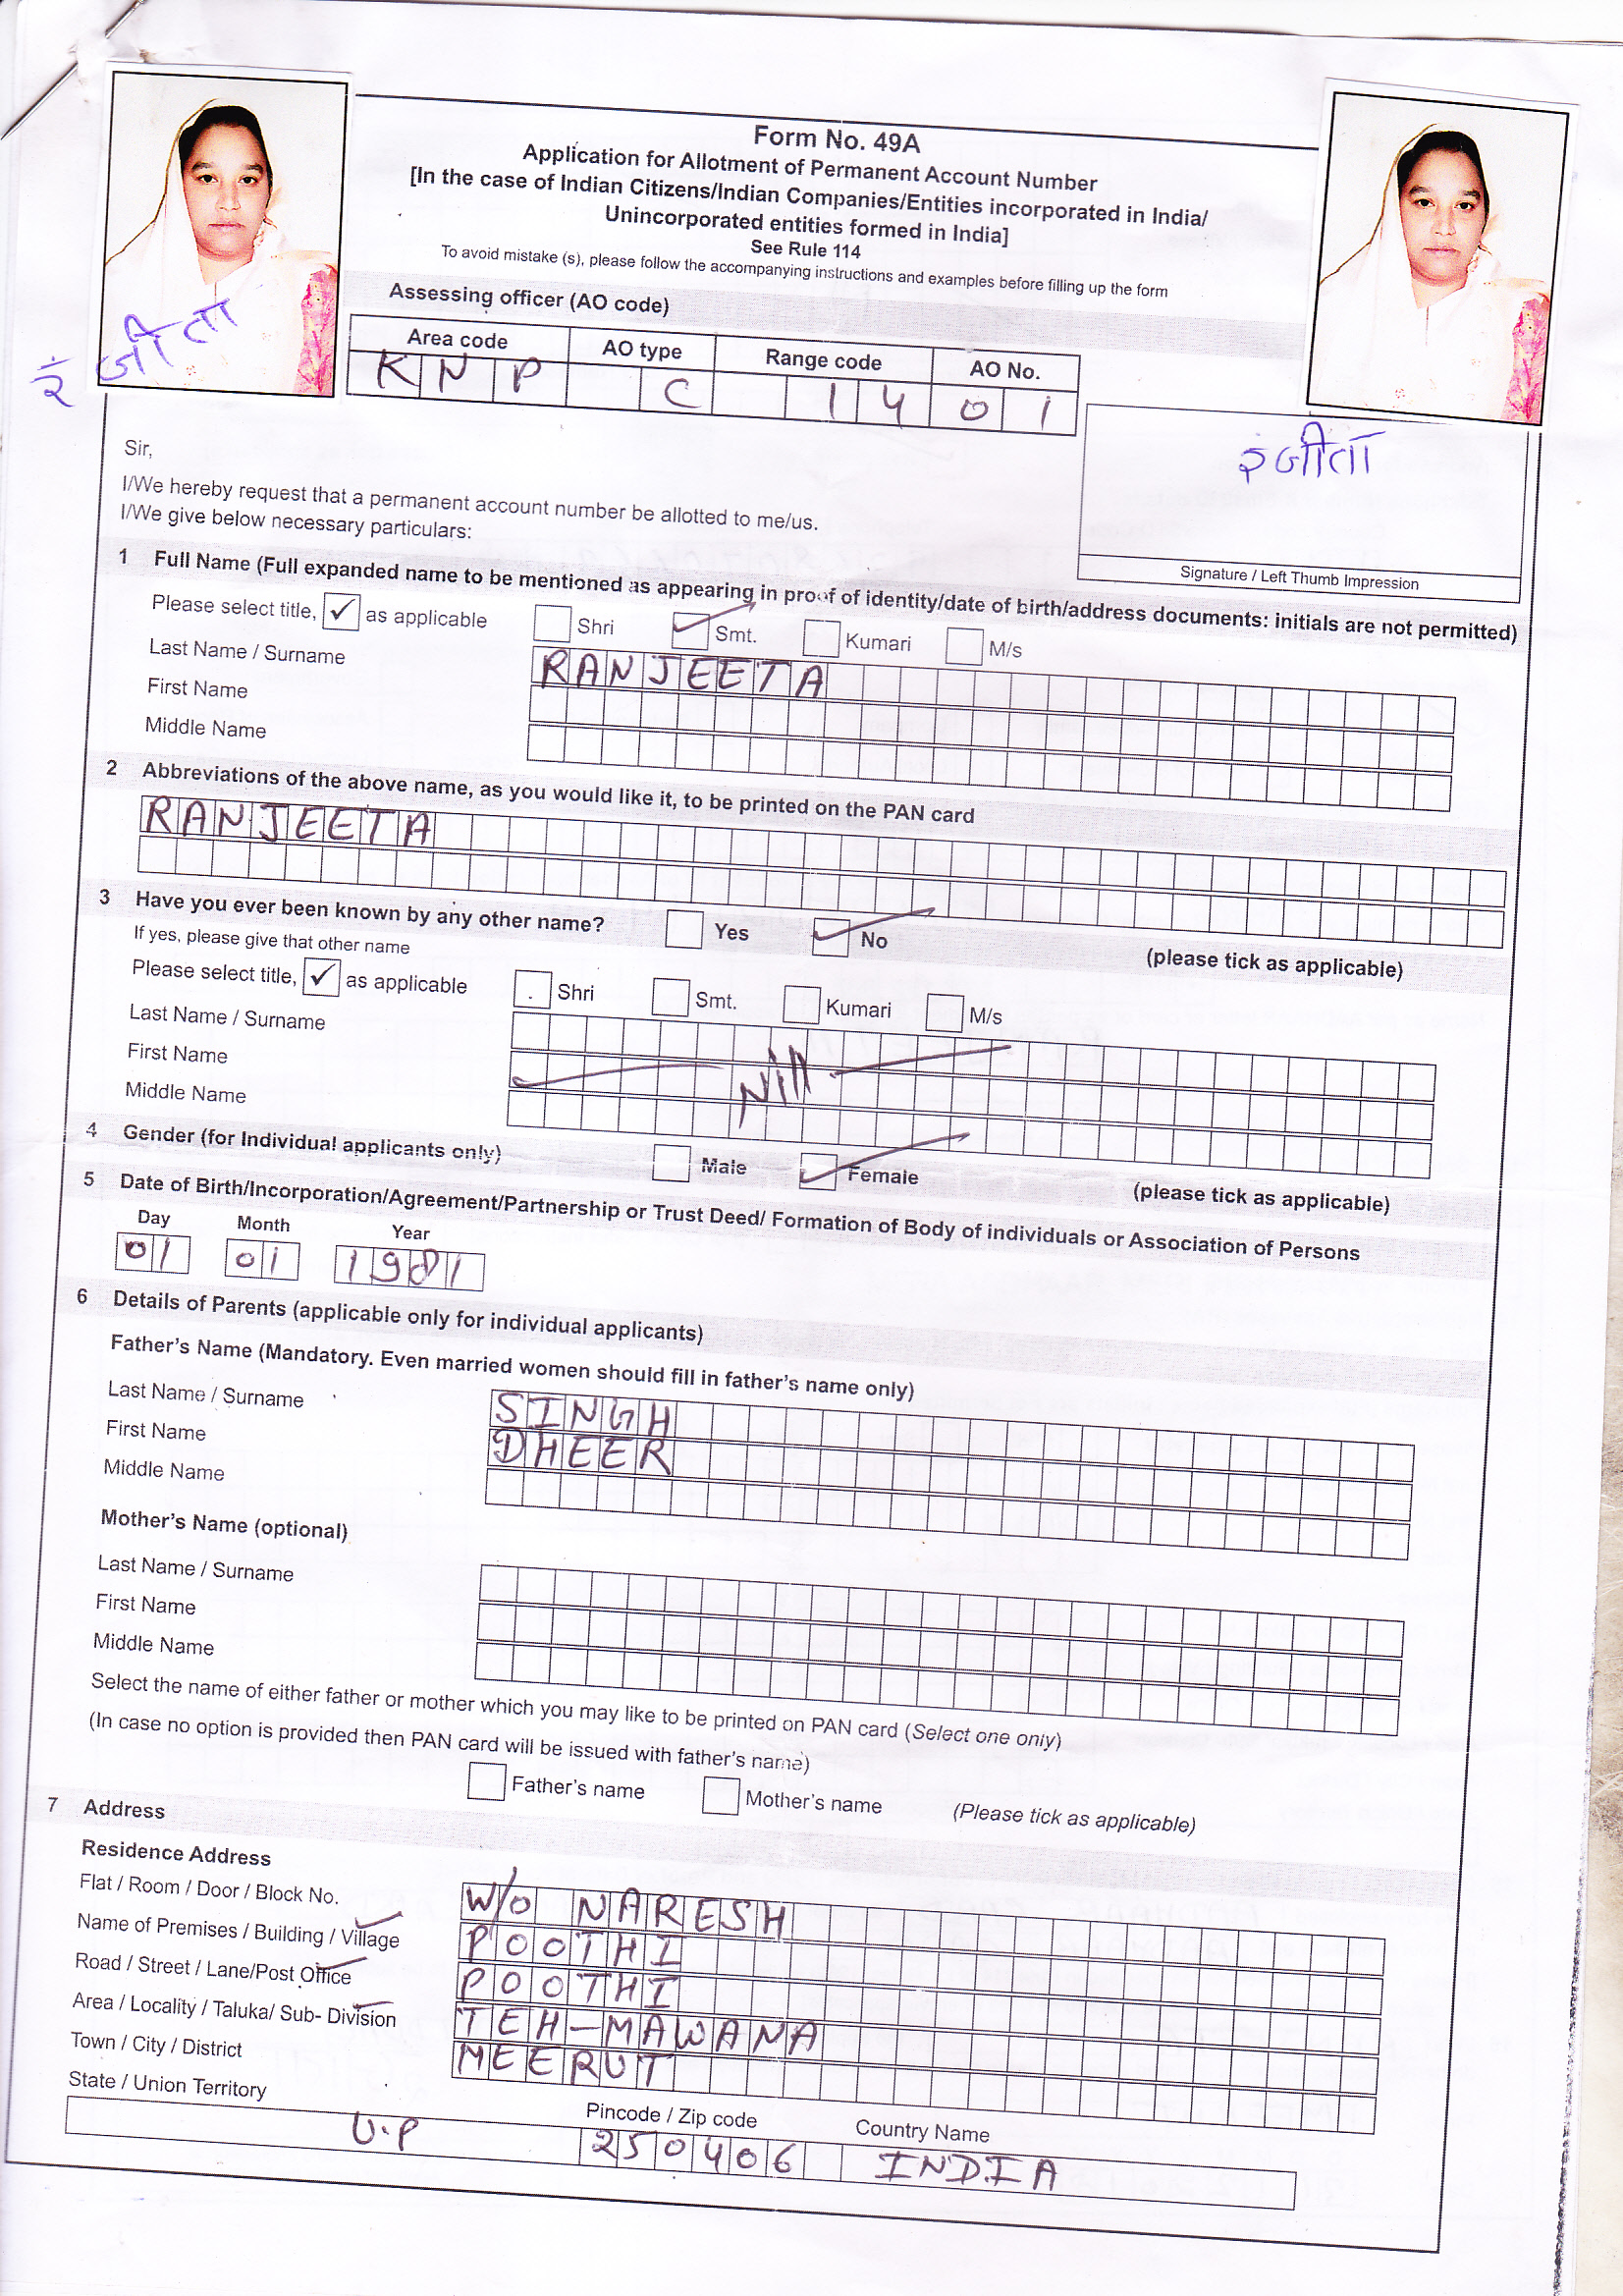 Form No. 49A
Application for Allotment of Permanent Account Number
[In the case of Indian Citizens/Indian Companies/Entities incorporated in India/
Unincorporated entities formed in India]
See Rule 114
To avoid mistake (s), please follow the accompanying instructions and examples before filling up the form
Assessing officer (AO code)
Area code AO type Range code AO No.
KNP C 14 01
रंजीता
रंजीता
Sir,
I/We hereby request that a permanent account number be allotted to me/us.
I/We give below necessary particulars:
Signature / Left Thumb Impression
1 Full Name (Full expanded name to be mentioned as appearing in proof of identity/date of birth/address documents: initials are not permitted)
Please select title, ✓ as applicable Shri Smt. Kumari M/s
Last Name / Surname RANJEETA
First Name
Middle Name
2 Abbreviations of the above name, as you would like it, to be printed on the PAN card
RANJEETA
3 Have you ever been known by any other name? Yes No (please tick as applicable)
If yes, please give that other name
Please select title, ✓ as applicable Shri Smt. Kumari M/s
Last Name / Surname
First Name Nill
Middle Name
4 Gender (for Individual applicants only) Male Female (please tick as applicable)
5 Date of Birth/Incorporation/Agreement/Partnership or Trust Deed/ Formation of Body of individuals or Association of Persons
Day Month Year
01 01 1981
6 Details of Parents (applicable only for individual applicants)
Father's Name (Mandatory. Even married women should fill in father's name only)
Last Name / Surname SINGH
First Name DHEER
Middle Name
Mother's Name (optional)
Last Name / Surname
First Name
Middle Name
Select the name of either father or mother which you may like to be printed on PAN card (Select one only)
(In case no option is provided then PAN card will be issued with father's name)
Father's name Mother's name (Please tick as applicable)
7 Address
Residence Address
Flat / Room / Door / Block No. W/O NARESH
Name of Premises / Building / Village POOTHI
Road / Street / Lane/Post Office POOTHI
Area / Locality / Taluka/ Sub- Division TEH-MAWANA
Town / City / District MEERUT
State / Union Territory Pincode / Zip code Country Name
U.P 250406 INDIA